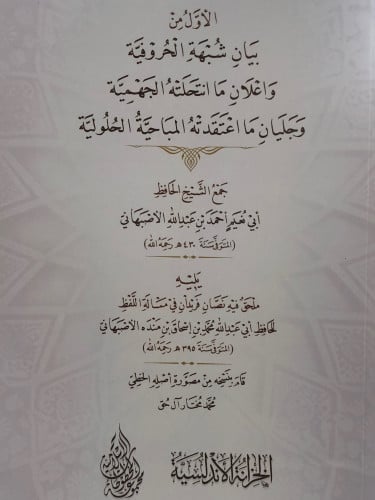 الأوّل من
بيان شبهة الحروفيّة
وإعلان ما انتحلته الجهميّة
وجليان ما اعتقدته المباحيّة الحلوليّة
جمع الشّيخ الحافظ
أبي نعيم أحمد بن عبد الله الأصبهاني
(المتوفّى سنة ٤٣٠ هـ رحمه الله)
يليه
ملحق فيه نصّان فريدان في مسألة اللّفظ
لحافظ أبي عبد الله محمّد بن إسحاق بن منده الأصبهاني
(المتوفّى سنة ٣٩٥ هـ رحمه الله)
قام بنسخه من مصوّرة أصله الخطّي
محمّد مختار آل حق
الخزانة الأندلسيّة